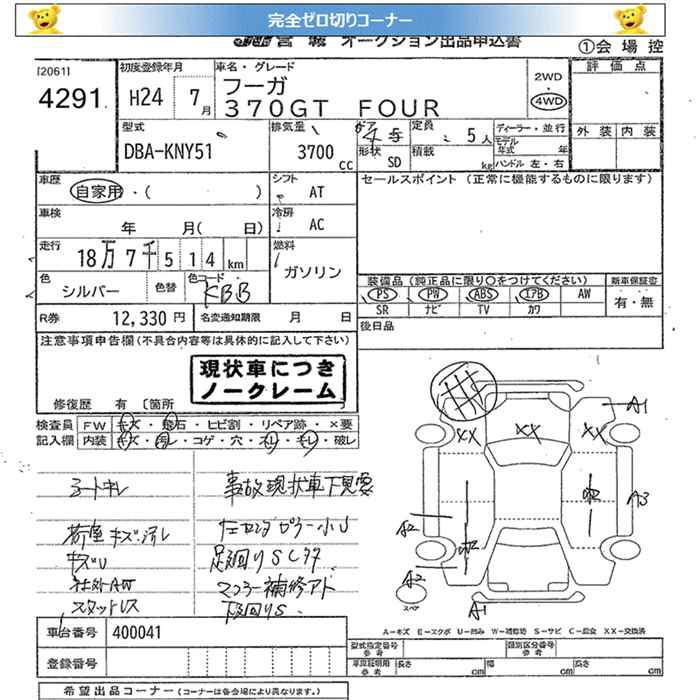 完全ゼロ切りコーナー
宮城 オークション出品申込書
①会場控
[2061]
4291
初度登録年月
H24 7月
車名・グレード
フーガ
370GT FOUR
2WD
4WD
評価点
外装 内装
型式
DBA-KNY51
排気量
3700 cc
定員 5人
形状 SD
積載 kg
ディーラー・並行
モデル年式 年
ハンドル 左・右
車歴
自家用・( )
シフト
AT
セールスポイント (正常に機能するものに限ります)
車検
年 月( 日)
冷房
AC
走行
18万7千514 km
燃料
ガソリン
色
シルバー
色替
色コード
KBB
装備品 (純正品に限り○をつけてください)
新車保証書
PS PW ABS エアB AW
SR ナビ TV カワ
有・無
R券 12,330円
名変通知期限 月 日
後日品
注意事項申告欄(不具合内容等は具体的に記入して下さい)
現状車につき
ノークレーム
修復歴 有 [箇所
検査員記入欄
FW キズ・飛石・ヒビ割・リペア跡・×要
内装 キズ・汚レ・コゲ・穴・スレ・キレ・破レ
シートキレ
事故現状車下見要
荷室キズ汚レ
キズU
足回りSC
社外AW
マフラー補修アト
スタッドレス
下回りS
A1
XX XX XX
A3
A2
A2
A1
スペア
A-キズ E-エクボ U-凹み W-補修跡 S-サビ C-腐食 XX-交換済
車台番号 400041
登録番号
型式指定番号 参考
類別区分番号 参考
車庫証明用 参考
長さ cm
幅 cm
高さ cm
希望出品コーナー (コーナーは各会場により異なります。)